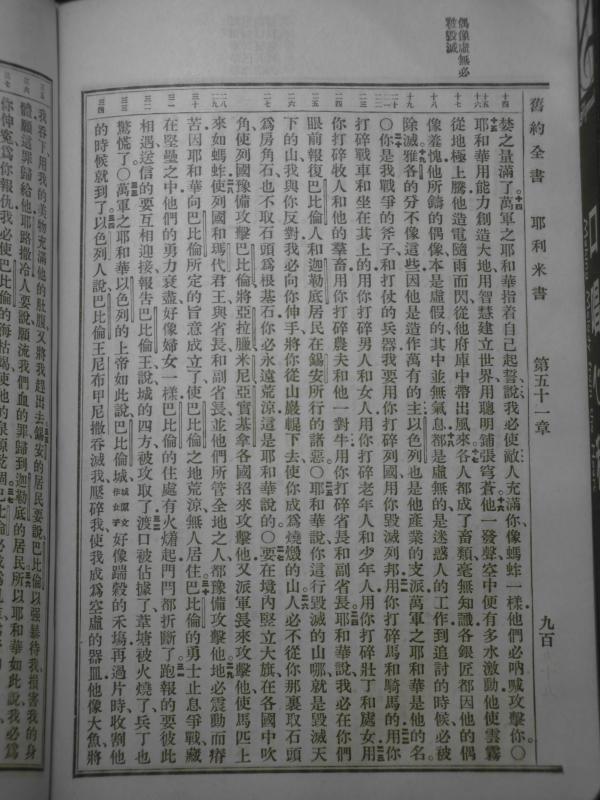 偶像虛無必
被毀滅
舊約全書 耶利米書 第五十一章 九百
婪之量滿了萬軍之耶和華指着自己起誓說我必使敵人充滿你像螞蚱一樣他們必吶喊攻擊你〇
耶和華用能力創造大地用智慧建立世界用聰明鋪張穹蒼他一發聲空中便有多水激動他使雲霧
從地極上騰他造電隨雨而閃從他府庫中帶出風來各人都成了畜類毫無知識各銀匠都因他的偶
像羞愧他所鑄的偶像本是虛假的其中並無氣息都是虛無的是迷惑人的工作到追討的時候必被
除滅雅各的分不像這些因他是造作萬有的主以色列也是他產業的支派萬軍之耶和華是他的名
〇你是我戰爭的斧子和打仗的兵器我要用你打碎列國用你毀滅列邦用你打碎馬和騎馬的用你
打碎戰車和坐在其上的用你打碎男人和女人用你打碎老年人和少年人用你打碎壯丁和處女用
你打碎牧人和他的羣畜用你打碎農夫和他一對牛用你打碎省長和副省長耶和華說我必在你們
眼前報復巴比倫人和迦勒底居民在錫安所行的諸惡〇耶和華說你這行毀滅的山哪就是毀滅天
下的山我與你反對我必向你伸手將你從山巖輥下去使你成為燒燬的山人必不從你那裏取石頭
為房角石也不取石頭為根基石你必永遠荒涼這是耶和華說的〇要在境內竪立大旗在各國中吹
角使列國豫備攻擊巴比倫將亞拉臘米尼亞實基拿各國招來攻擊他又派軍長來攻擊他使馬匹上
來如螞蚱使列國和瑪代君王與省長和副省長並他們所管全地之人都豫備攻擊他地必震動而瘠
苦因耶和華向巴比倫所定的旨意成立了使巴比倫之地荒涼無人居住巴比倫的勇士止息爭戰藏
在堅壘之中他們的勇力衰盡好像婦女一樣巴比倫的住處有火𤏲起門閂都折斷了跑報的要彼此
相遇送信的要互相迎接報告巴比倫王說城的四方被攻取了渡口被佔據了葦塘被火燒了兵丁也
驚慌了〇萬軍之耶和華以色列的上帝如此說巴比倫城城原文作女子好像踹穀的禾場再過片時收割他
的時候就到了以色列人說巴比倫王尼布甲尼撒吞滅我壓碎我使我成為空虛的器皿他像大魚將
我吞下用我的美物充滿他的肚腹又將我趕出去錫安的居民要說巴比倫以強暴待我損害我的身
體願這罪歸給他耶路撒冷人要說願流我們血的罪歸到迦勒底的居民所以耶和華如此說我必為
你伸寃為你報仇我必使巴比倫的海枯竭使他的泉源乾涸